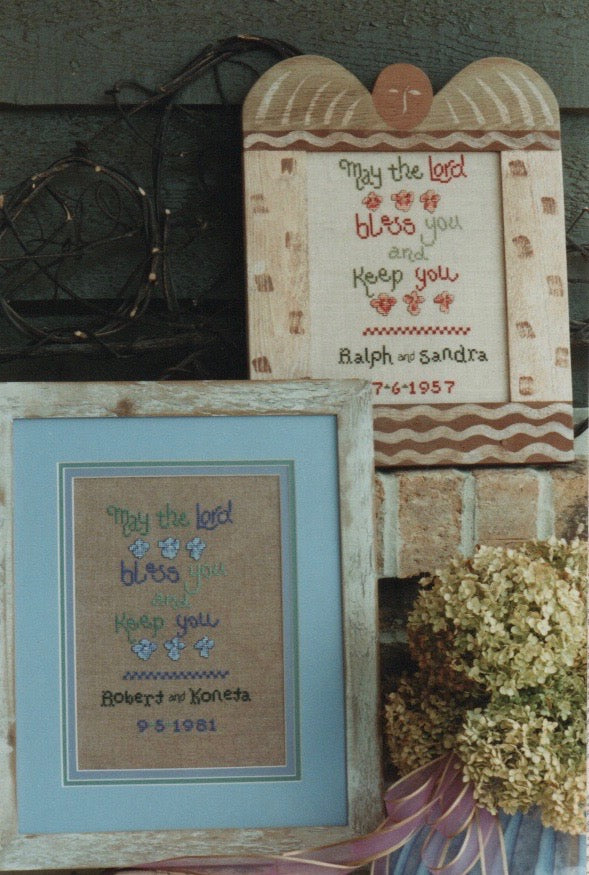 May the Lord
bless you
and
Keep you
Ralph and Sandra
7-6-1957
May the Lord
bless you
and
Keep you
Robert and Koneta
9 5 1981